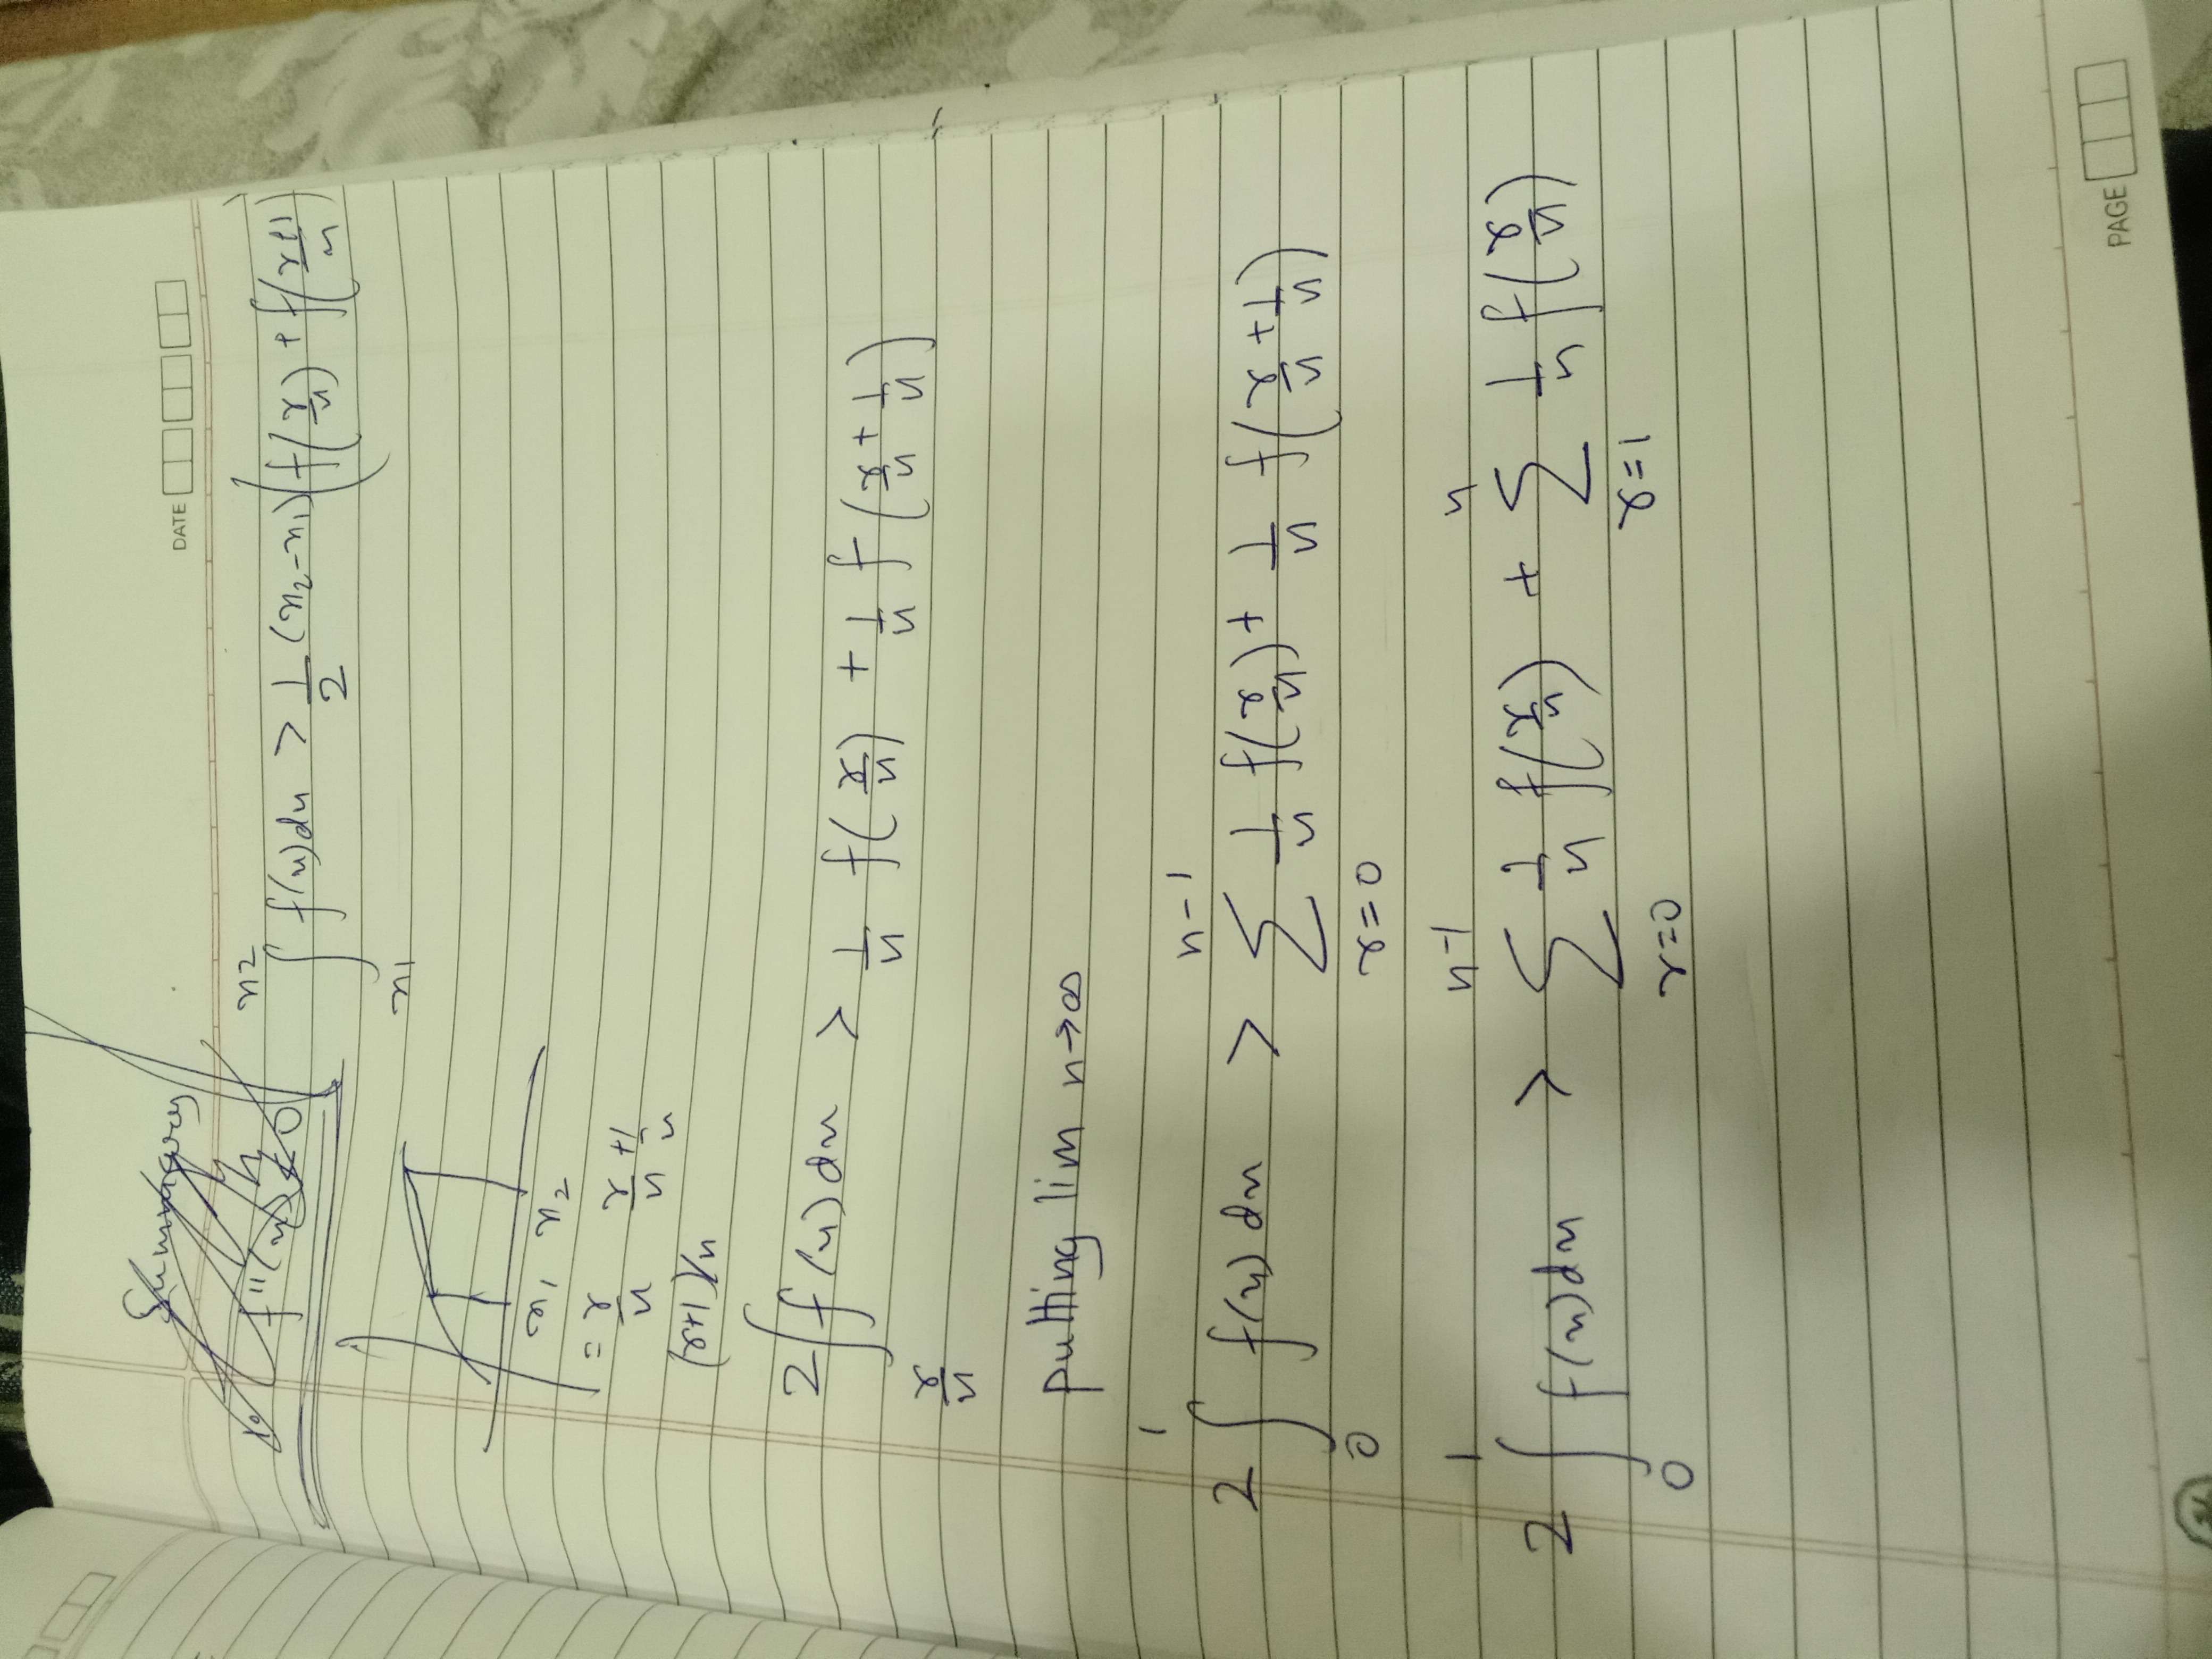 DATE
f''(x) < 0
∫_{x1}^{x2} f(x)dx > 1/2 (x2-x1)(f(r/n) + f((r+1)/n))
x1 x2
= r/n r/n + 1/n
(r+1)/n
2∫_{r/n} f(x)dx > 1/n f(r/n) + 1/n f(r/n + 1/n)
putting lim n→∞
2∫_0^1 f(x)dx > Σ_{r=0}^{n-1} 1/n f(r/n) + 1/n f(r/n + 1/n)
2∫_0^1 f(x)dx > Σ_{r=0}^{n-1} 1/n f(r/n) + Σ_{r=1}^{n} 1/n f(r/n)
PAGE